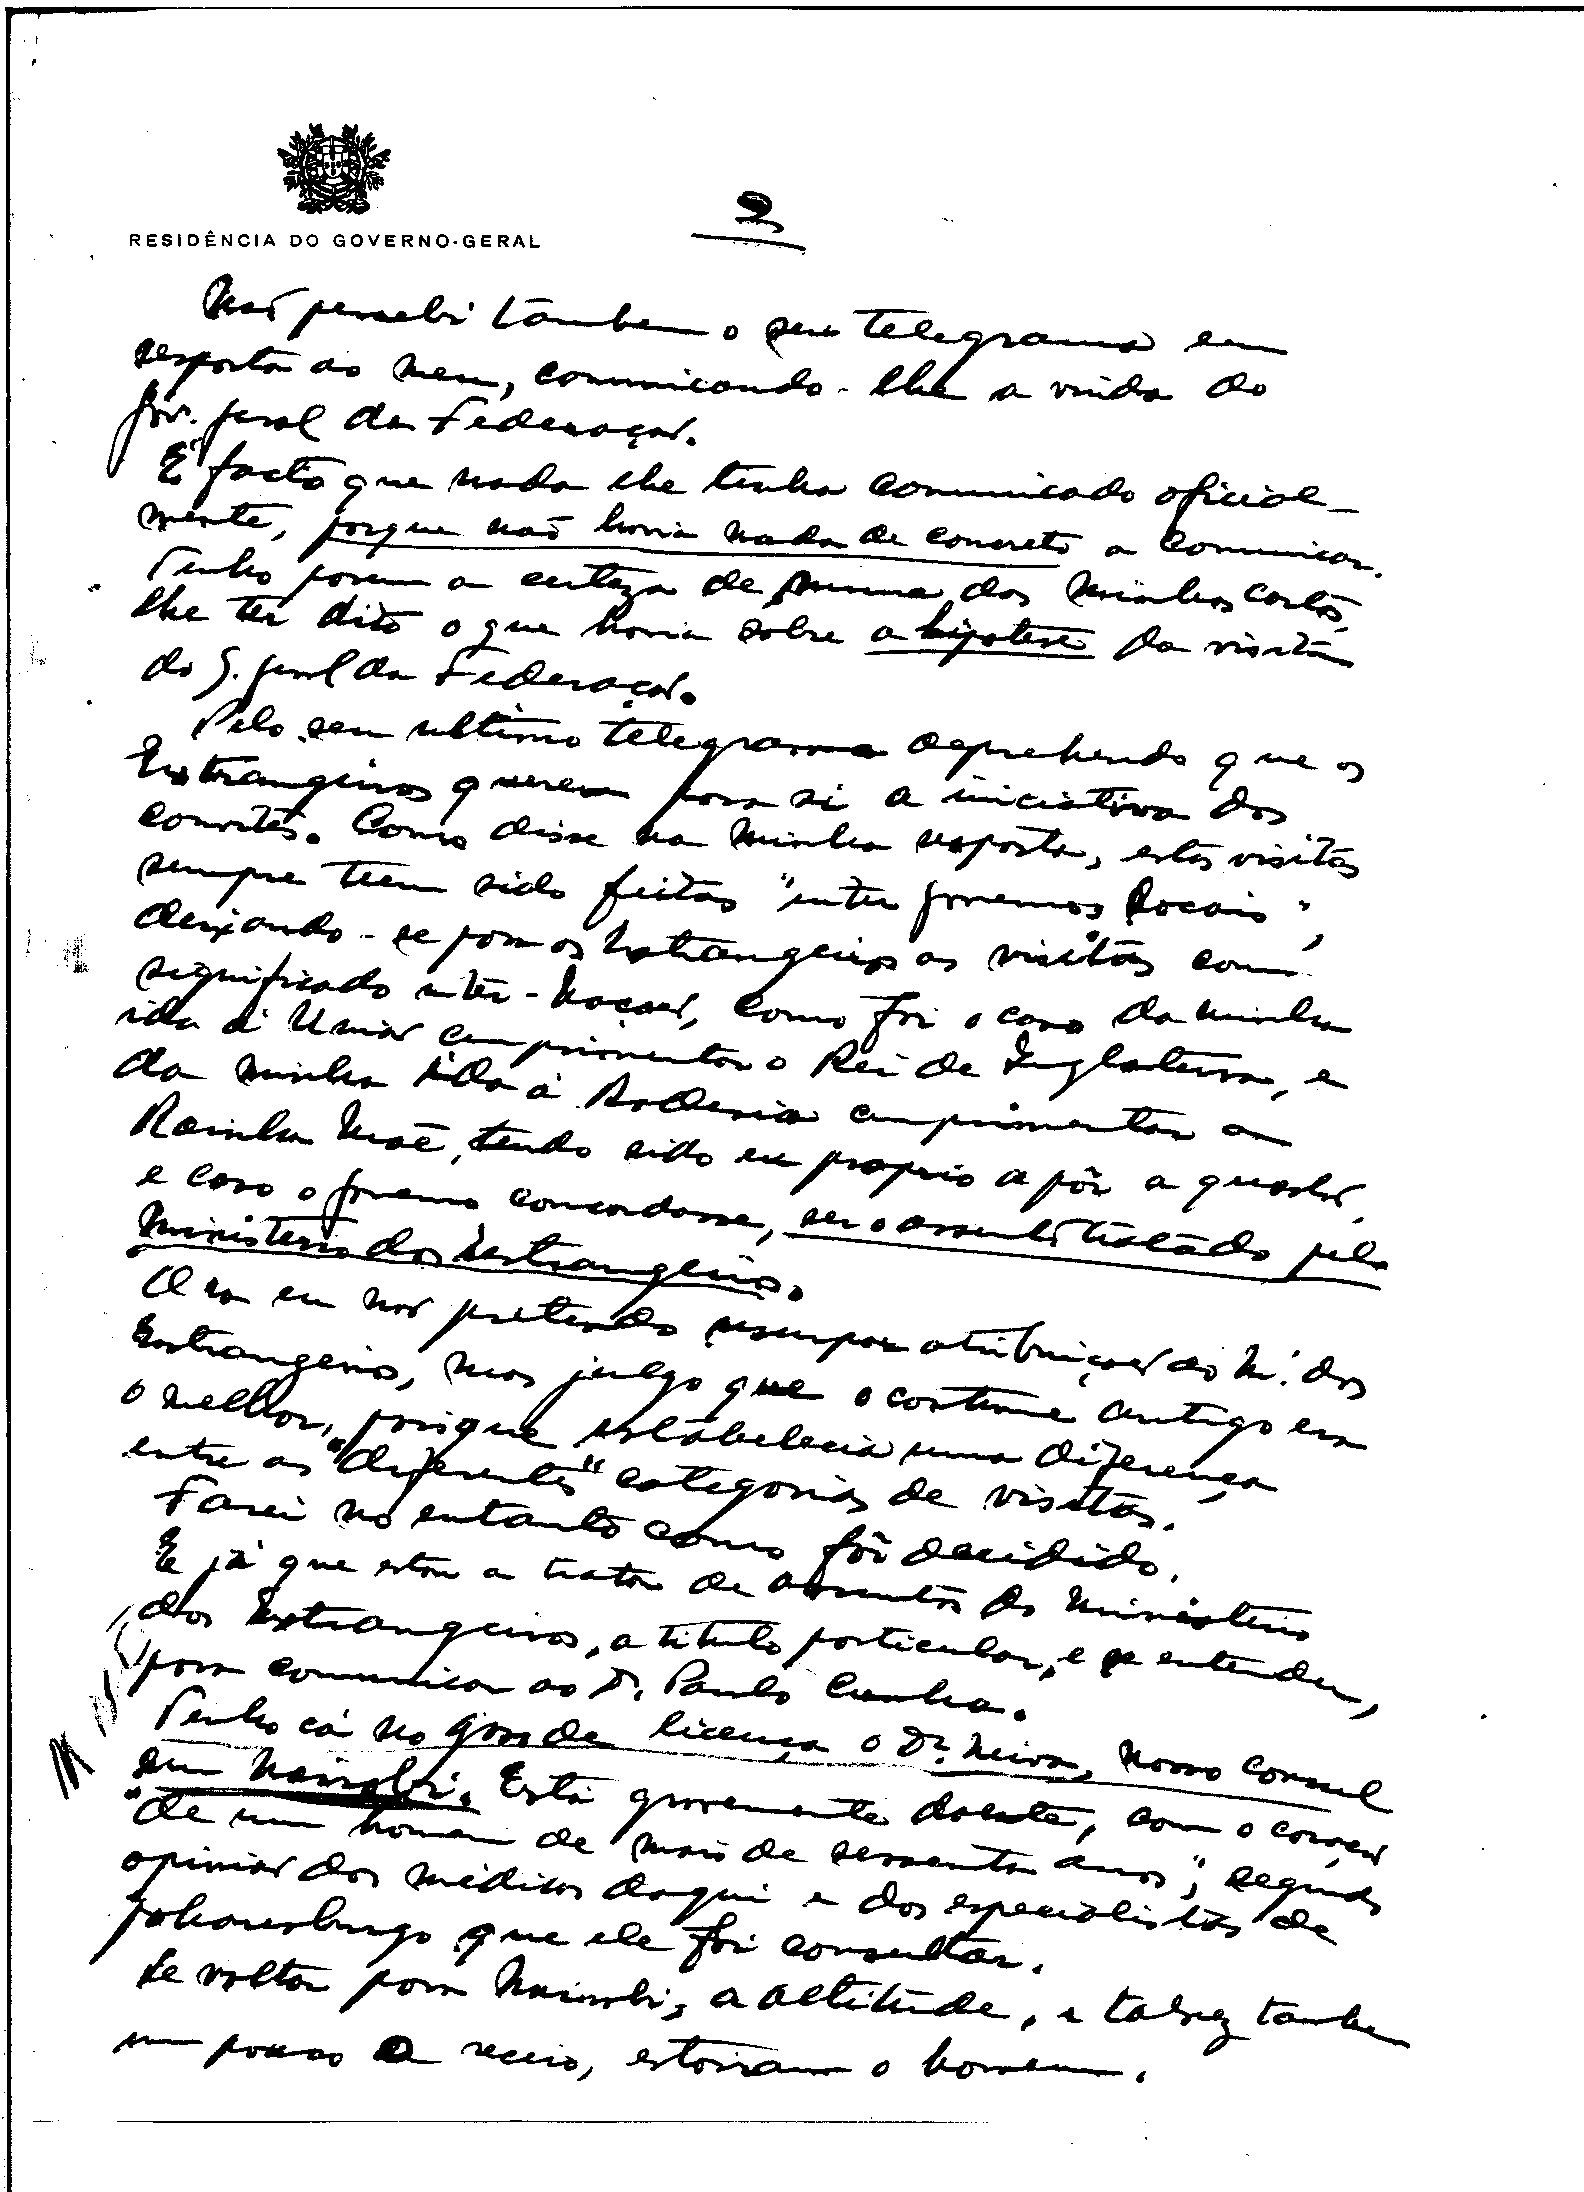 RESIDÊNCIA DO GOVERNO-GERAL
2
Não percebi tambem o seu telegrama em
resposta ao meu, comunicando-lhe a vinda do
Gov. geral da Federação.
É facto que nada lhe tinha comunicado oficial-
mente, porque não havia nada de concreto a comunicar.
Tenho porem a certeza de numa das minhas cartas,
lhe ter dito o que havia sobre a hipotese da visita
do G. geral da Federação.
Pelo seu ultimo telegrama deprehendo que os
Extrangeiros querem para si a iniciativa dos
convites. Como disse na minha resposta, estas visitas
sempre teem sido feitas "inter governos locais",
deixando-se para os Extrangeiros as visitas com
significado inter-Nações, como foi o caso da minha
ida á União cumprimentar o Rei de Inglaterra, e
da minha ida á Rodesia cumprimentar a
Rainha Mãe, tendo sido eu proprio a pôr a questão,
e caso o governo concordasse, ser o assunto tratado pelo
Ministerio dos Extrangeiros.
Ora eu não pretendo usurpar atribuições ao M. dos
Extrangeiros, mas julgo que o costume antigo era
o melhor, porque estabelecia uma diferença
entre as "diferentes" categorias de visitas.
Farei no entanto como fôr decidido.
E já que estou a tratar de assuntos do Ministerio
dos Extrangeiros, a titulo particular, e se entender,
para comunicar ao D. Paulo Cunha.
Tenho cá no goso de licença o Dr. Neiva, nosso consul
em Nairobi. Está gravemente doente, com o coração
"de um homem de mais de sessenta anos", segundo
opinião dos médicos daqui e dos especialistas de
Johanesburgo que ele foi consultar.
Se voltar para Nairobi, a altitude, e talvez tambem
um pouco o receio, estoiram o homem.